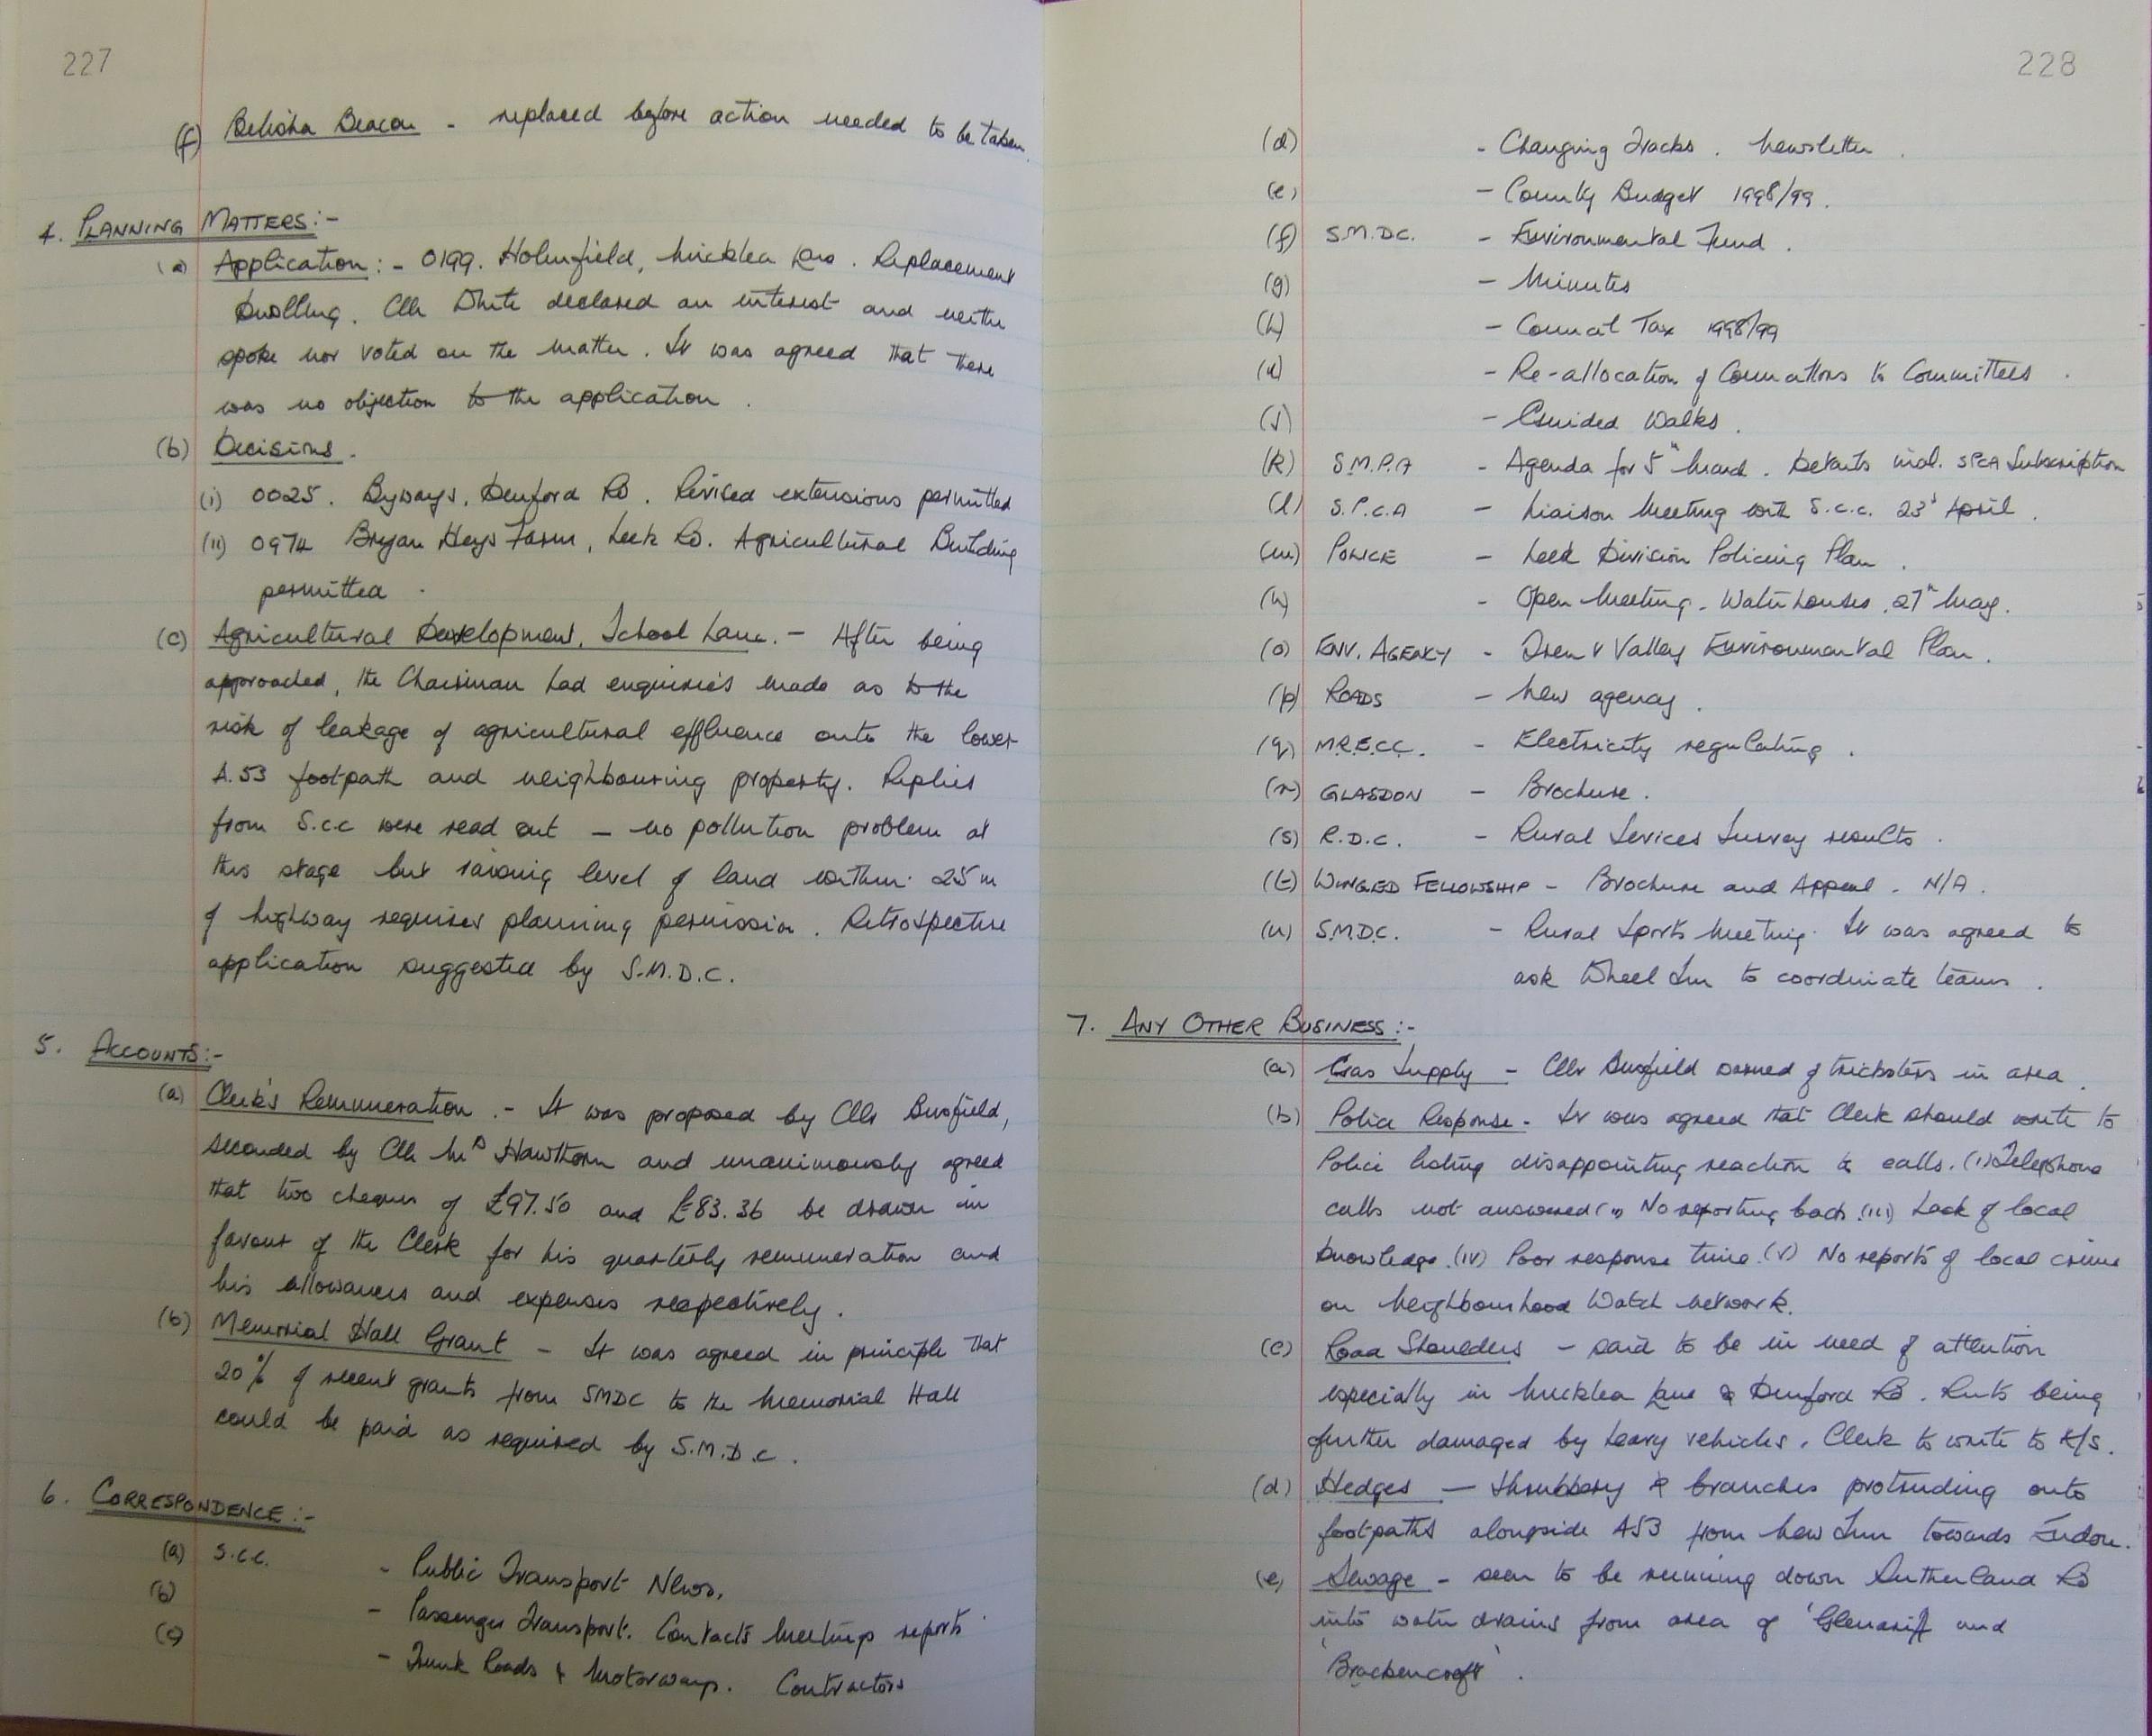 227
(f) Belisha Beacon - replaced before action needed to be taken.
4. PLANNING MATTERS:-
(a) Application:- 0199. Holmfield, Micklea Lane. Replacement
Dwelling. Cllr White declared an interest and neither
spoke nor voted on the matter. It was agreed that there
was no objection to the application.
(b) Decisions.
(i) 0025. Byways, Denford Rd. Revised extensions permitted
(ii) 0974 Bryan Heys Farm, Leek Rd. Agricultural Building
permitted.
(c) Agricultural Development, School Lane. - After being
approached, the Chairman had enquiries made as to the
risk of leakage of agricultural effluence onto the lower
A.53 footpath and neighbouring property. Replies
from S.C.C were read out - no pollution problem at
this stage but raising level of land within 25m
of highway requires planning permission. Retrospective
application suggested by S.M.D.C.
5. ACCOUNTS:-
(a) Clerk's Remuneration. - It was proposed by Cllr Busfield,
seconded by Cllr Mrs Hawthorn and unanimously agreed
that two cheques of £97.50 and £83.36 be drawn in
favour of the Clerk for his quarterly remuneration and
his allowances and expenses respectively.
(b) Memorial Hall Grant - It was agreed in principle that
20% of recent grants from SMDC to the Memorial Hall
could be paid as required by S.M.D.C.
6. CORRESPONDENCE:-
(a) S.C.C. - Public Transport News.
(b) - Passenger Transport. Contacts Meetings reports
(c) - Trunk Roads & Motorways. Contractors
228
(d) - Changing Tracks. Newsletter.
(e) - County Budget 1998/99.
(f) S.M.D.C. - Environmental Fund.
(g) - Minutes
(h) - Council Tax 1998/99
(i) - Re-allocation of Councillors to Committees.
(j) - Guided Walks.
(k) S.M.P.A - Agenda for 5th March. Details incl. SPCA Subscription
(l) S.P.C.A - Liaison Meeting with S.C.C. 23rd April.
(m) POLICE - Leek Division Policing Plan.
(n) - Open Meeting. Waterhouses. 27th May.
(o) ENV. AGENCY - Trent Valley Environmental Plan.
(p) ROADS - New agency.
(q) M.R.E.C.C. - Electricity regulating.
(r) GLASDON - Brochure.
(s) R.D.C. - Rural Services Survey results.
(t) WINGED FELLOWSHIP - Brochure and Appeal. N/A.
(u) S.M.D.C. - Rural Sports Meeting. It was agreed to
ask Wheel Inn to coordinate teams.
7. ANY OTHER BUSINESS:-
(a) Gas Supply - Cllr Busfield warned of tricksters in area.
(b) Police Response - It was agreed that Clerk should write to
Police listing disappointing reaction to calls. (i) Telephone
calls not answered (ii) No reporting back. (iii) Lack of local
knowledge. (iv) Poor response time. (v) No reports of local crime
on Neighbourhood Watch network.
(c) Road Shoulders - said to be in need of attention
especially in Micklea Lane & Denford Rd. Ruts being
further damaged by heavy vehicles. Clerk to write to H/S.
(d) Hedges - Shrubbery & branches protruding onto
footpaths alongside A53 from New Inn towards Endon.
(e) Sewage - seen to be running down Sutherland Rd
into water drains from area of 'Glenariff and
'Brackencroft'.